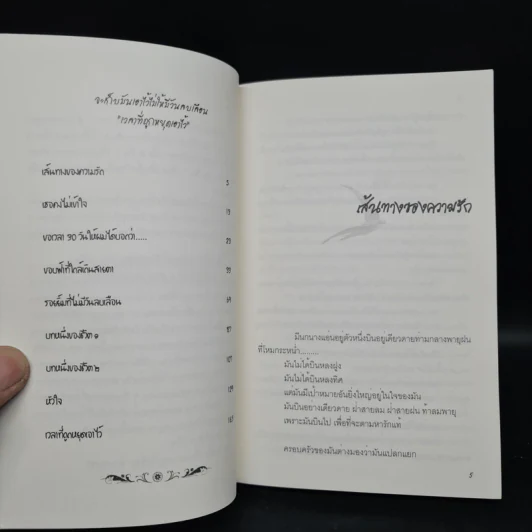 จะเก็บมันเอาไว้ไม่ให้มีวันลบเลือน
"เวลาที่ถูกหยุดเอาไว้"
เส้นทางของความรัก 5
เธอคงไม่เข้าใจ
ขอเวลา 30 วันให้ผมได้บอกว่า.....
ขอบฟ้าที่ใกล้เกินสายตา
รอยยิ้มที่ไม่มีวันลบเลือน
บทหนึ่งของชีวิต ๑
บทหนึ่งของชีวิต ๒
หัวใจ
เวลาที่ถูกหยุดเอาไว้
เส้นทางของความรัก
มีนกนางแอ่นอยู่ตัวหนึ่งบินอยู่เดียวดายท่ามกลางพายุฝน
ที่โหมกระหน่ำ........
มันไม่ได้บินหลงฝูง
มันไม่ได้บินหลงทิศ
แต่มันมีเป้าหมายอันยิ่งใหญ่อยู่ในใจของมัน
มันบินอย่างเดียวดาย ฝ่าสายลม ฝ่าสายฝน ท้าลมพายุ
เพราะมันบินไป เพื่อที่จะตามหารักแท้
ครอบครัวของมันต่างมองว่ามันแปลกแยก
5